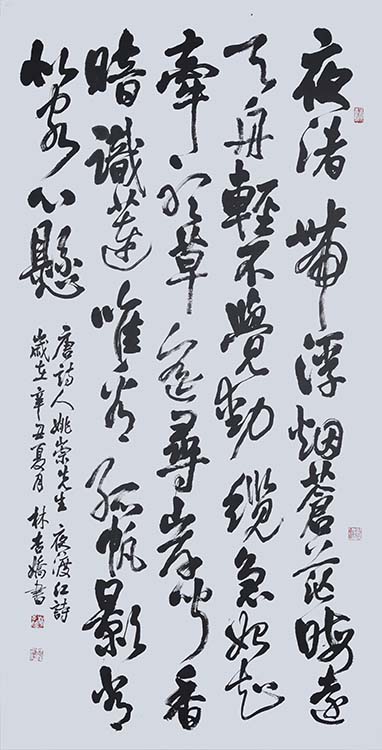 夜渚帶浮烟蒼茫晦遠
天舟輕不覺動纜急始知
牽聽草遙尋岸聞香
暗識蓮唯看孤帆影常
似客心懸
唐詩人姚崇先生夜渡江詩
歲在辛丑夏月林杏嬌書